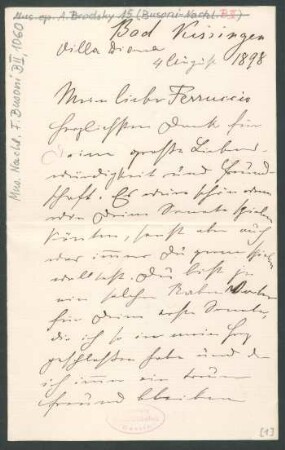 Mus. ep. A. Brodsky 15 (Busoni-Nachl. B II)
Mus. Nachl. F. Busoni B II, 1060
Bad Kissingen
Villa Diana
4 August 1898
Mein lieber Ferruccio
Herzlichsten Dank für
Deine große Liebens-
würdigkeit und Freund-
schaft. Es wäre schön wenn
wir Deine Sonate spielen
könnten, sonst aber auch
was immer Du gerne spielen
wolltest. Du bist ja
ein solcher
für Deine erste Sonate,
die ich so in mein Herz
geschlossen habe und der
ich immer ein treuer
Freund bleiben
[1]